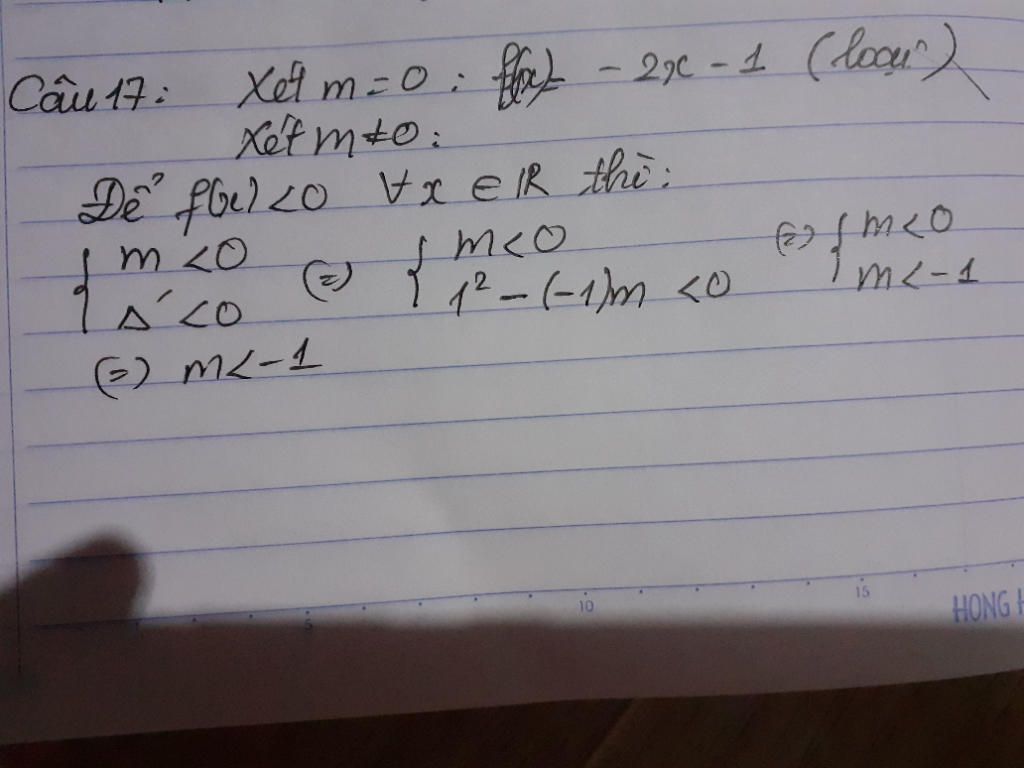 Câu 17: Xét m = 0 : f(x) = -2x - 1 (loại)
Xét m ≠ 0 :
Để f(x) < 0 ∀x ∈ ℝ thì:
{ m < 0 (=) { m < 0 (=) { m < 0
{ Δ' < 0 { 1² - (-1)m < 0 { m < -1
(=) m < -1
5 10 15
HONG H